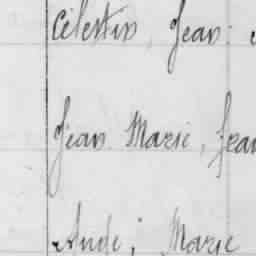 Célestin, Jean
Jean Marie, Jean
Aude, Marie